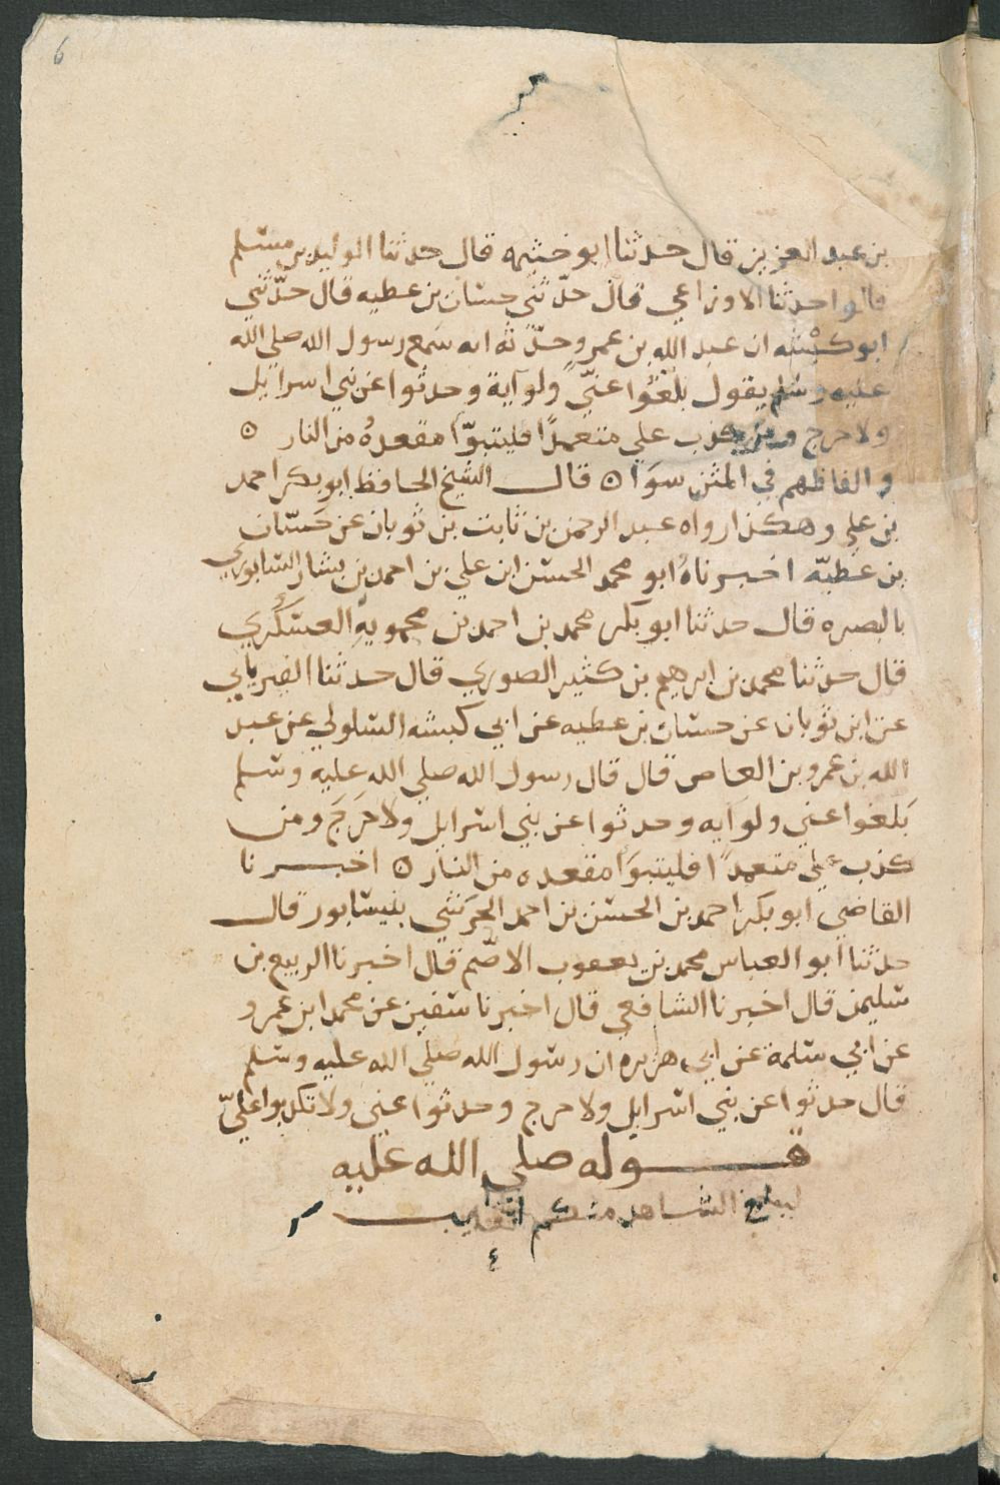 6
بن عبد العزيز قال حدثنا ابو خثيمه قال حدثنا الوليد بن مسلم
قالوا حدثنا الاوزاعي قال حدّثني حسّان بن عطيه قال حدّثني
ابو كبْشه ان عبد الله بن عمرٍو حدّثه انه سَمع رسول الله صلى الله
عليه وسلم يقول بلّغُوا عنّي ولو آية وحدثوا عن بني اسرائيل
ولا حرج ومن كذب علي متعمدًا فليتبوّا مقعدهُ من النار ه
والفاظهم في المتن سوَا ه قال الشيخ الحافظ ابو بكر احمد
بن علي وهكذا رواه عبد الرحمن بن ثابت بن ثوبان عن حَسّان
بن عَطيّه اخبرناهُ ابو محمد الحسن ابن علي بن احمد بن بشار السابوري
بالبصره قال حدثنا ابو بكر محمد بن احمد بن محمويهِ العسْكَري
قال حدثنا محمد بن ابرهيم بن كثير الصوري قال حدثنا الفريابي
عن ابن ثوبان عن حسّان بن عطيه عن ابي كبشه السّلولي عن عبد
الله بن عمرو بن العاص قال قال رسول الله صلي الله عليه وسلم
بَلغوا عني ولو آيه وحدثوا عن بني اسرايل ولا حَرَجَ ومن
كذب علي متعمدًا فليتبوَا مقعده من النار ه اخبرنا
القاضي ابو بكر احمد بن الحسن بن احمد الحَرَشي بنيسَابور قال
حدثنا ابو العباس محمد بن يعقوب الاصّم قال اخبرنا الربيع بن
سليمن قال اخبرنا الشافعي قال اخبرنا سفين عن محمد ابن عمرو
عن ابي سلمة عن ابي هريره ان رسول الله صلي الله عليه وسلم
قال حدثوا عن بني اسرايل ولا حرج وحدثوا عني ولا تكذبوا عليّ
قوله صلي الله عليه
ليبلغ الشاهد منكم الغايب